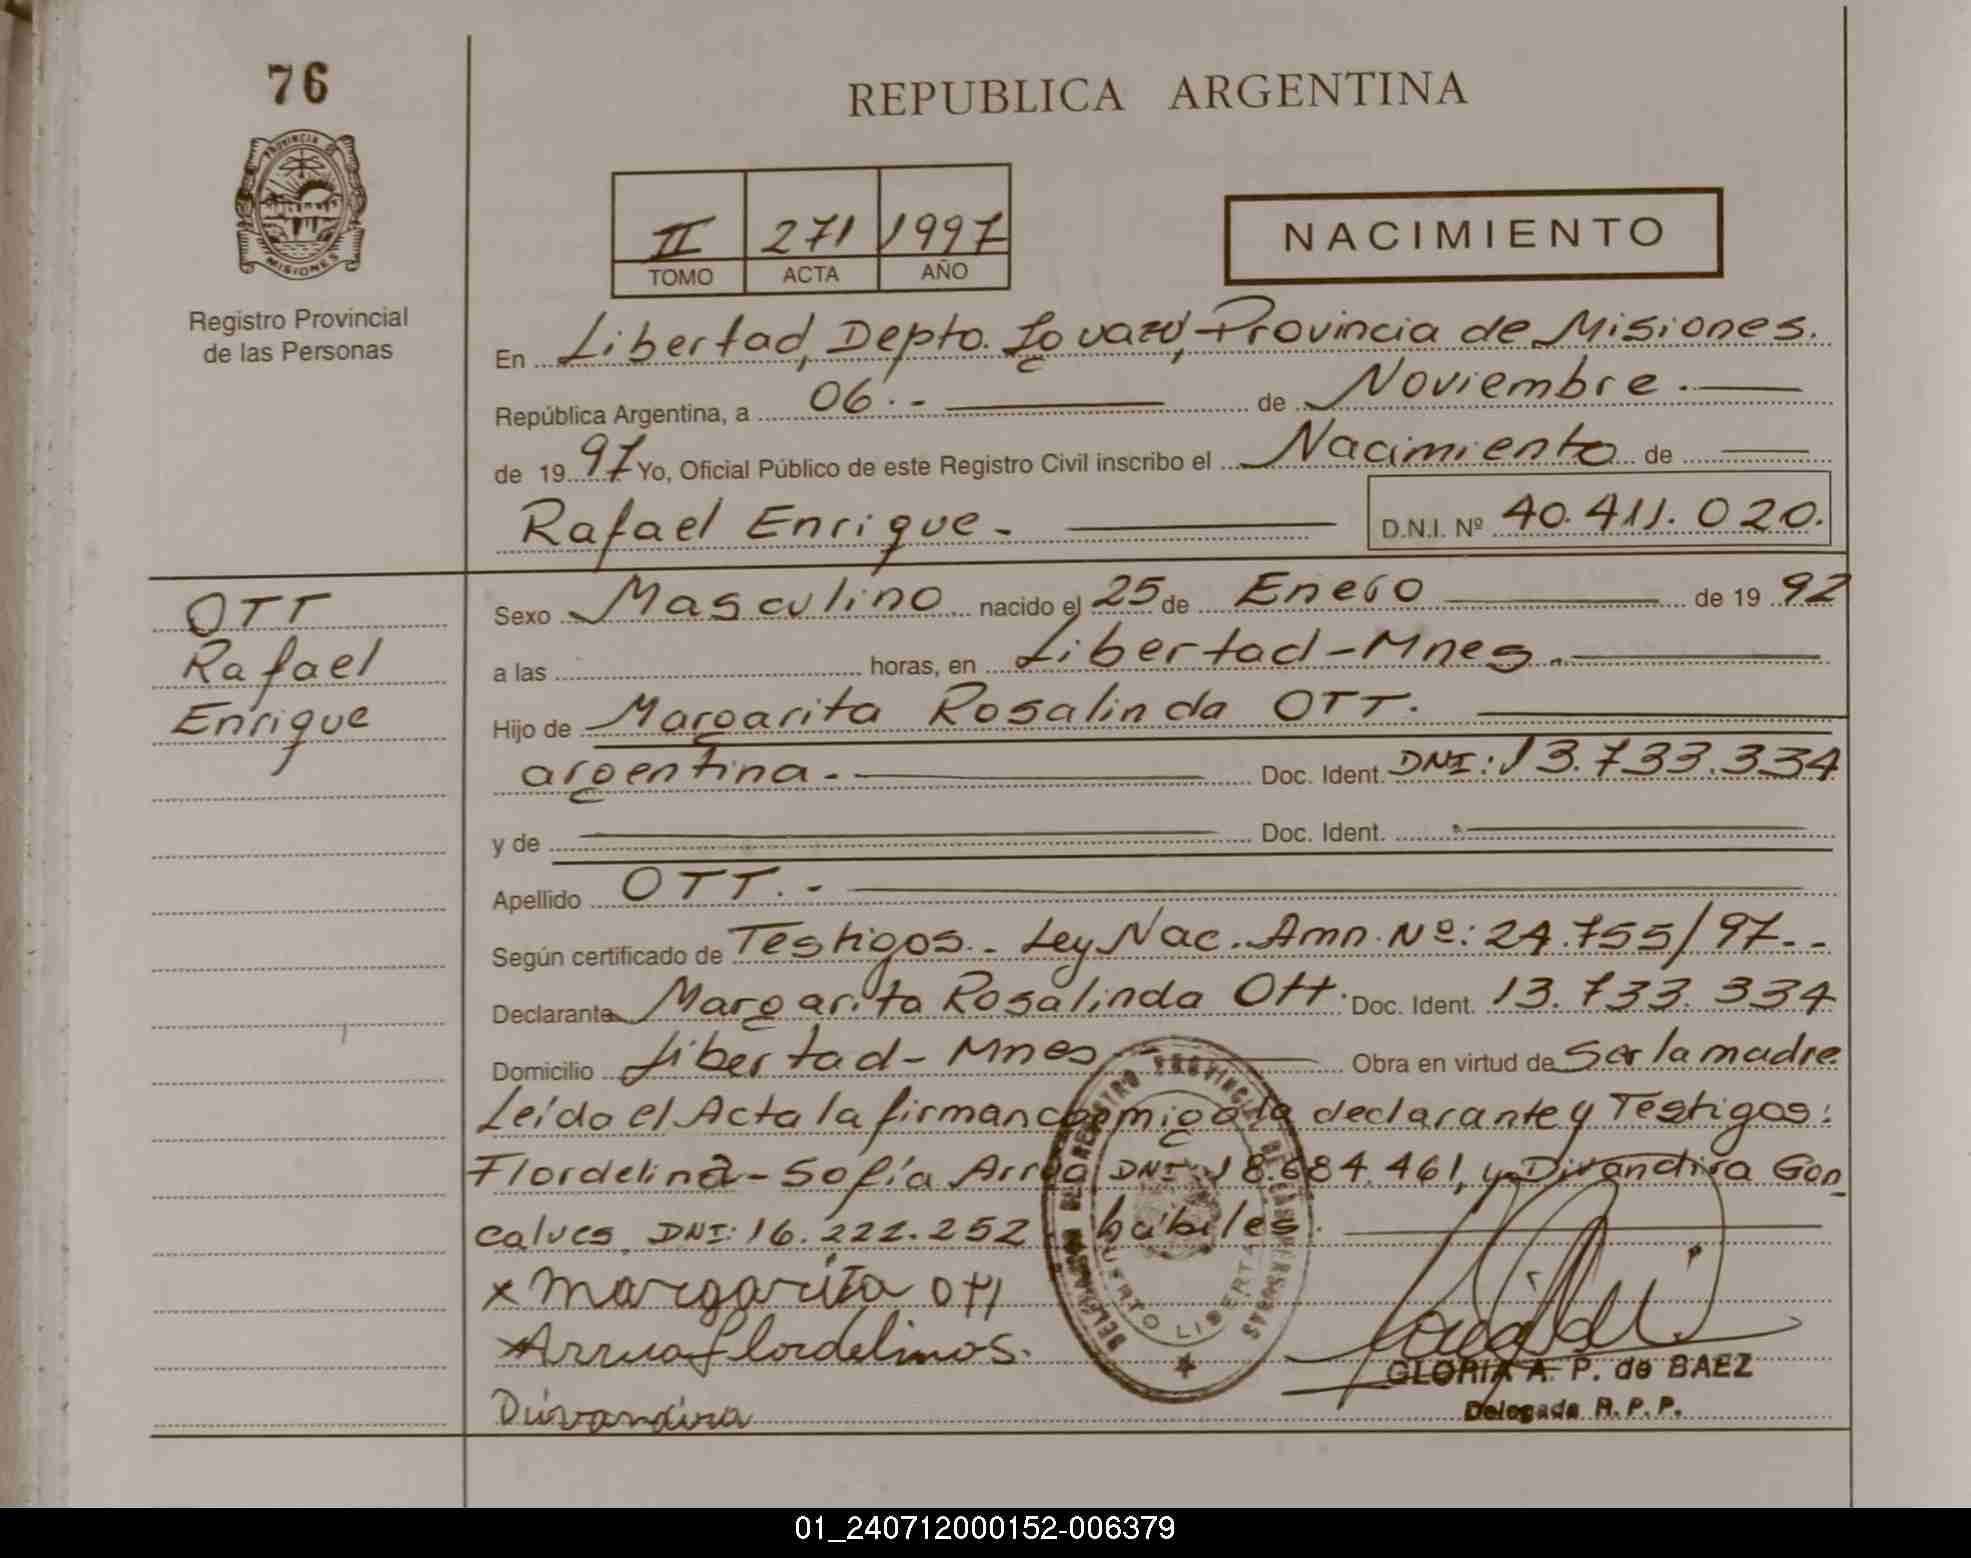 76
REPUBLICA ARGENTINA
PROVINCIA DE
MISIONES
II 271 1997
TOMO ACTA AÑO
NACIMIENTO
Registro Provincial
de las Personas
En Libertad, Depto. Iguazú, Provincia de Misiones.
República Argentina, a 06.- de Noviembre.
de 1997 Yo, Oficial Público de este Registro Civil inscribo el Nacimiento de
Rafael Enrique.- D.N.I. Nº 40.411.020.
OTT
Rafael
Enrique
Sexo Masculino nacido el 25 de Enero de 1992
a las horas, en Libertad-Mnes.
Hijo de Margarita Rosalinda OTT.
argentina.- Doc. Ident. DNI: 13.733.334
y de Doc. Ident.
Apellido OTT.-
Según certificado de Testigos.- Ley Nac. Amn. Nº: 24.755/97.-
Declarante Margarita Rosalinda Ott. Doc. Ident. 13.733.334
Domicilio Libertad- Mnes Obra en virtud de Ser la madre
Leído el Acta la firman conmigo la declarante y Testigos:
Flordelina-Sofía Arrua DNI: 18.684.461, y Divandira Gon
calves, DNI: 16.222.252 habiles.
x Margarita Ott
x Arrua flordelinos.
Divandira
REGISTRO PROVINCIAL DE LAS PERSONAS
PUERTO LIBERTAD
GLORIA A. P. de BAEZ
Delegada R. P. P.
01_240712000152-006379